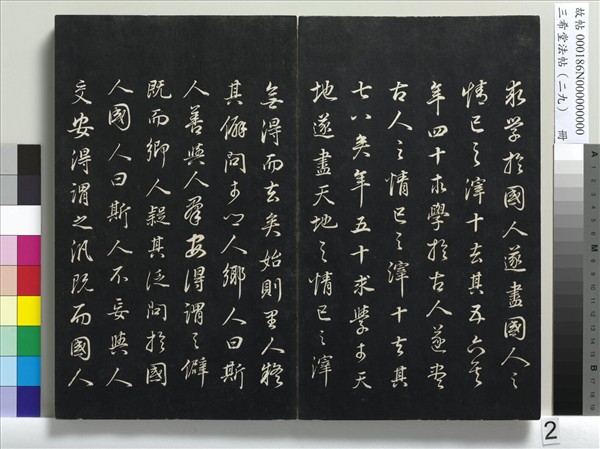 求学於國人遂盡國人之
情已之滓十去其五六矣
年四十求學於古人遂盡
古人之情已之滓十去其
七八矣年五十求學于天
地遂盡天地之情已之滓
無得而去矣始則里人疑
其僻問于鄉人鄉人曰斯
人善與人羣安得謂之僻
既而鄉人疑其泛問於國
人國人曰斯人不妄與人
交安得謂之汎既而國人
故帖 000186N000000000
三希堂法帖（二九） 冊
2